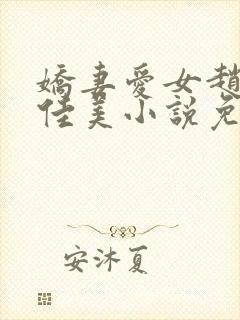 嬌妻愛女趙
佳美小說免
安沐夏